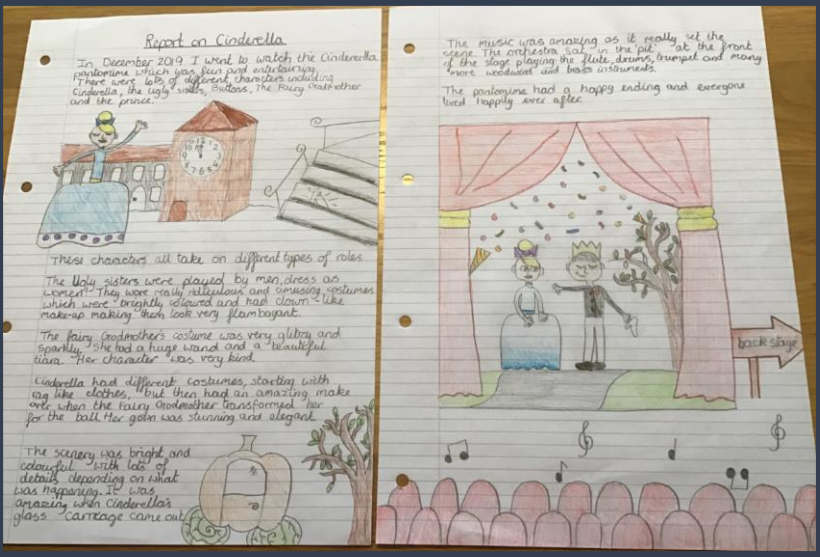 Report on Cinderella
In December 2019 I went to watch the Cinderella
pantomime which was fun and entertaining.
There were lots of different characters including
Cinderella, the ugly sisters, Buttons, The Fairy Godmother
and the prince.
12
These characters all take on different types of roles.
The Ugly sisters were played by men, dress as
women. They wore really ridiculous and amusing costumes
which were brightly coloured and had clown-like
make-up making them look very flamboyant.
The Fairy Godmother's costume was very glitzy and
sparkly. She had a huge wand and a beautiful
tiara. Her character was very kind.
Cinderella had different costumes, starting with
rag like clothes, but then had an amazing make
over when the Fairy Godmother transformed her
for the ball. Her gown was stunning and elegant
The scenery was bright and
colourful with lots of
details depending on what
was happening. It was
amazing when Cinderella's
glass carriage came out
The music was amazing as it really set the
scene. The orchestra sat in the 'pit' at the front
of the stage playing the flute, drums, trumpet and many
more woodwind and brass instruments.
The pantomime had a happy ending and everyone
lived happily ever after
back stage